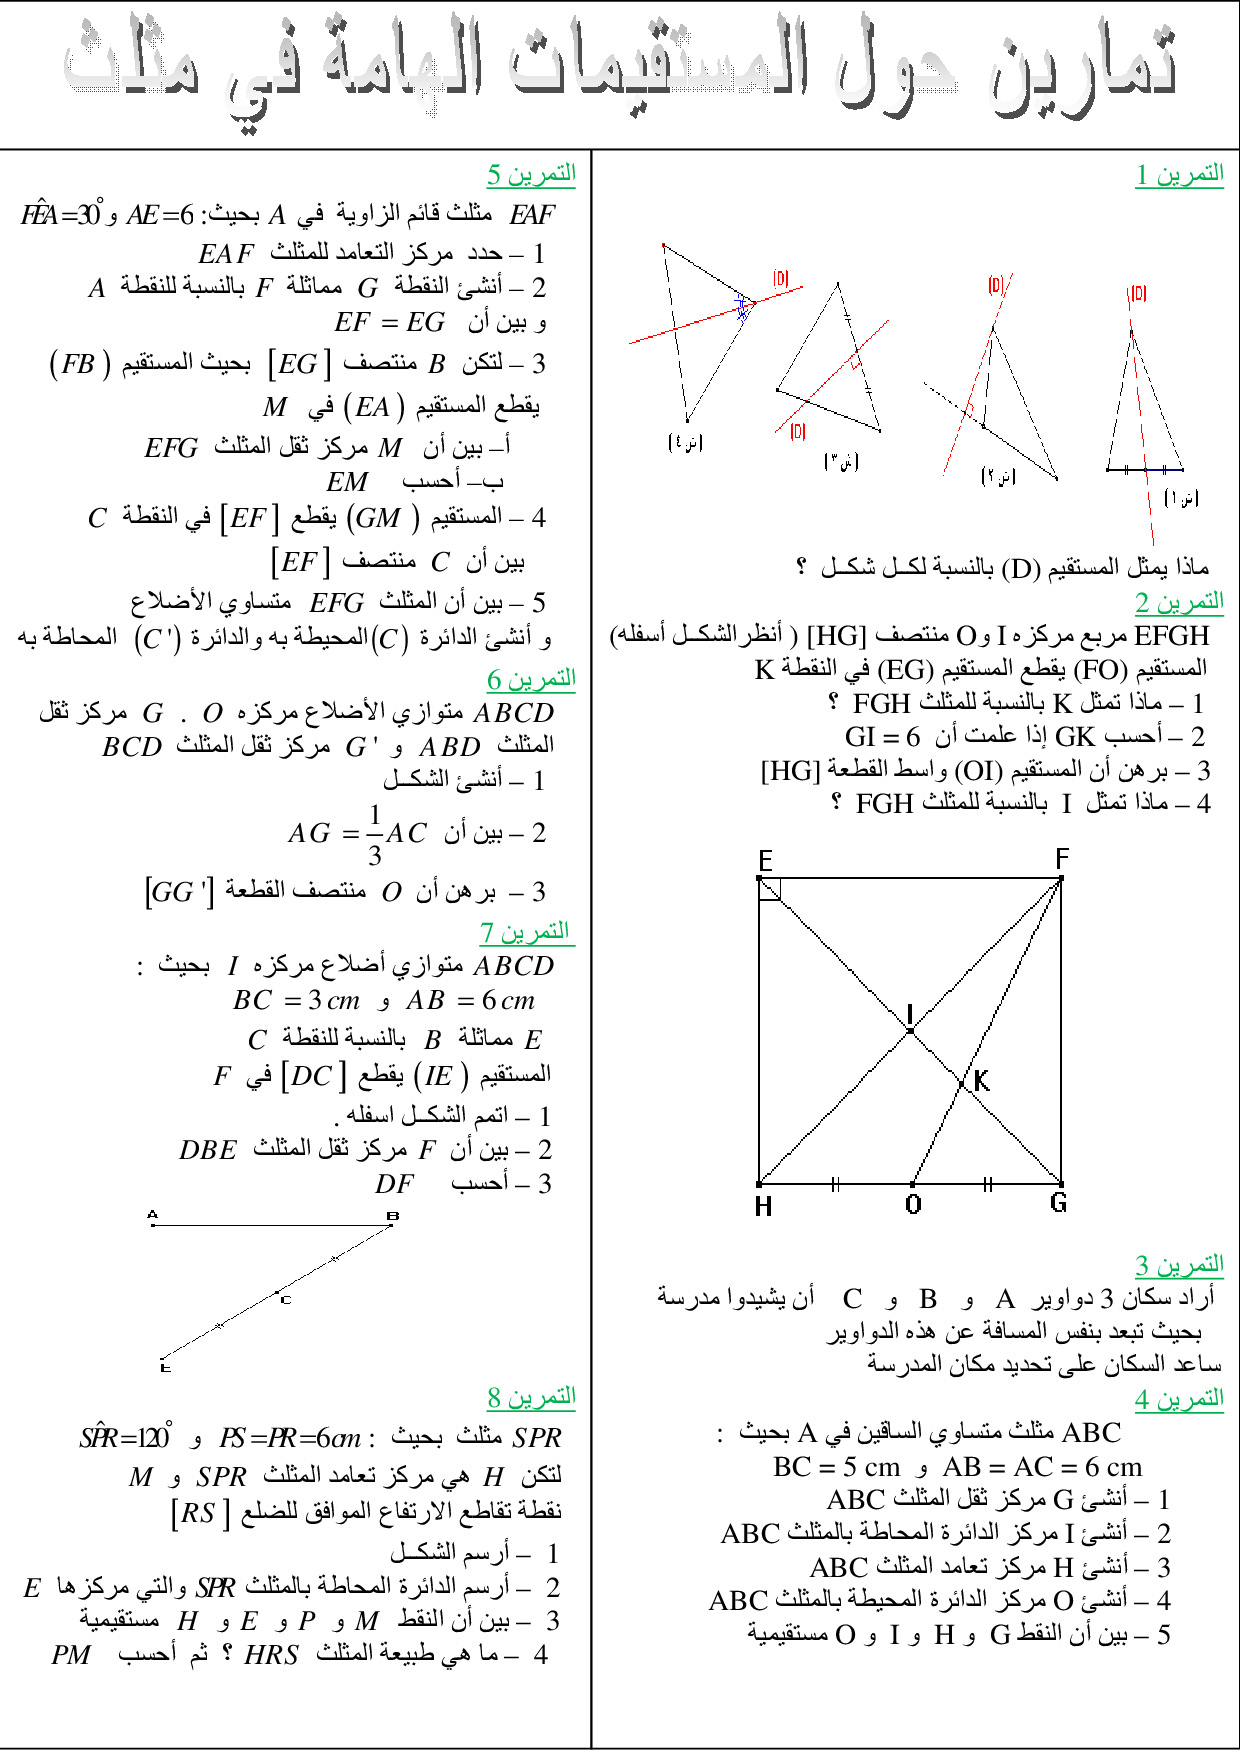 تمارين حول المستقيمات الهامة في مثلث
التمرين 1
(D)
(D)
(D)
(D)
(ش ١)
(ش ٢)
(ش ٣)
(ش ٤)
ماذا يمثل المستقيم (D) بالنسبة لكل شكل ؟
التمرين 2
EFGH مربع مركزه I و O منتصف [HG] ( أنظر الشكل أسفله)
المستقيم (FO) يقطع المستقيم (EG) في النقطة K
1 – ماذا تمثل K بالنسبة للمثلث FGH ؟
2 – أحسب GK إذا علمت أن GI = 6
3 – برهن أن المستقيم (OI) واسط القطعة [HG]
4 – ماذا تمثل I بالنسبة للمثلث FGH ؟
E F
I
K
H O G
التمرين 3
أراد سكان 3 دواوير A و B و C أن يشيدوا مدرسة
بحيث تبعد بنفس المسافة عن هذه الدواوير
ساعد السكان على تحديد مكان المدرسة
التمرين 4
ABC مثلث متساوي الساقين في A بحيث :
AB = AC = 6 cm و BC = 5 cm
1 – أنشئ G مركز ثقل المثلث ABC
2 – أنشئ I مركز الدائرة المحاطة بالمثلث ABC
3 – أنشئ H مركز تعامد المثلث ABC
4 – أنشئ O مركز الدائرة المحيطة بالمثلث ABC
5 – بين أن النقط G و H و I و O مستقيمية
التمرين 5
EAF مثلث قائم الزاوية في A بحيث: AE = 6 و FÊA = 30°
1 – حدد مركز التعامد للمثلث EAF
2 – أنشئ النقطة G مماثلة F بالنسبة للنقطة A
و بين أن EF = EG
3 – لتكن B منتصف [EG] بحيث المستقيم (FB)
يقطع المستقيم (EA) في M
أ– بين أن M مركز ثقل المثلث EFG
ب– أحسب EM
4 – المستقيم (GM) يقطع [EF] في النقطة C
بين أن C منتصف [EF]
5 – بين أن المثلث EFG متساوي الأضلاع
و أنشئ الدائرة (C) المحيطة به والدائرة (C') المحاطة به
التمرين 6
ABCD متوازي الأضلاع مركزه O . G مركز ثقل
المثلث ABD و G' مركز ثقل المثلث BCD
1 – أنشئ الشكل
2 – بين أن AG = 1/3 AC
3 – برهن أن O منتصف القطعة [GG']
التمرين 7
ABCD متوازي أضلاع مركزه I بحيث :
AB = 6 cm و BC = 3 cm
E مماثلة B بالنسبة للنقطة C
المستقيم (IE) يقطع [DC] في F
1 – اتمم الشكل اسفله .
2 – بين أن F مركز ثقل المثلث DBE
3 – أحسب DF
A B
C
E
التمرين 8
SPR مثلث بحيث : PS = PR = 6cm و SP̂R = 120°
لتكن H هي مركز تعامد المثلث SPR و M
نقطة تقاطع الارتفاع الموافق للضلع [RS]
1 – أرسم الشكل
2 – أرسم الدائرة المحاطة بالمثلث SPR والتي مركزها E
3 – بين أن النقط M و P و E و H مستقيمية
4 – ما هي طبيعة المثلث HRS ؟ ثم أحسب PM